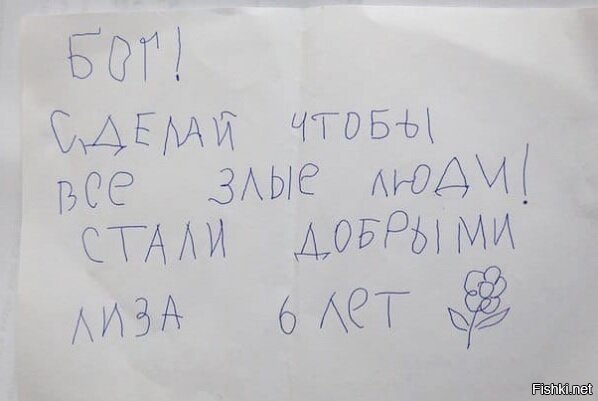 БОГ!
СДЕЛАЙ ЧТОБЫ
ВСЕ ЗЛЫЕ ЛЮДИ!
СТАЛИ ДОБРЫМИ
ЛИЗА 6 ЛЕТ
Fishki.net